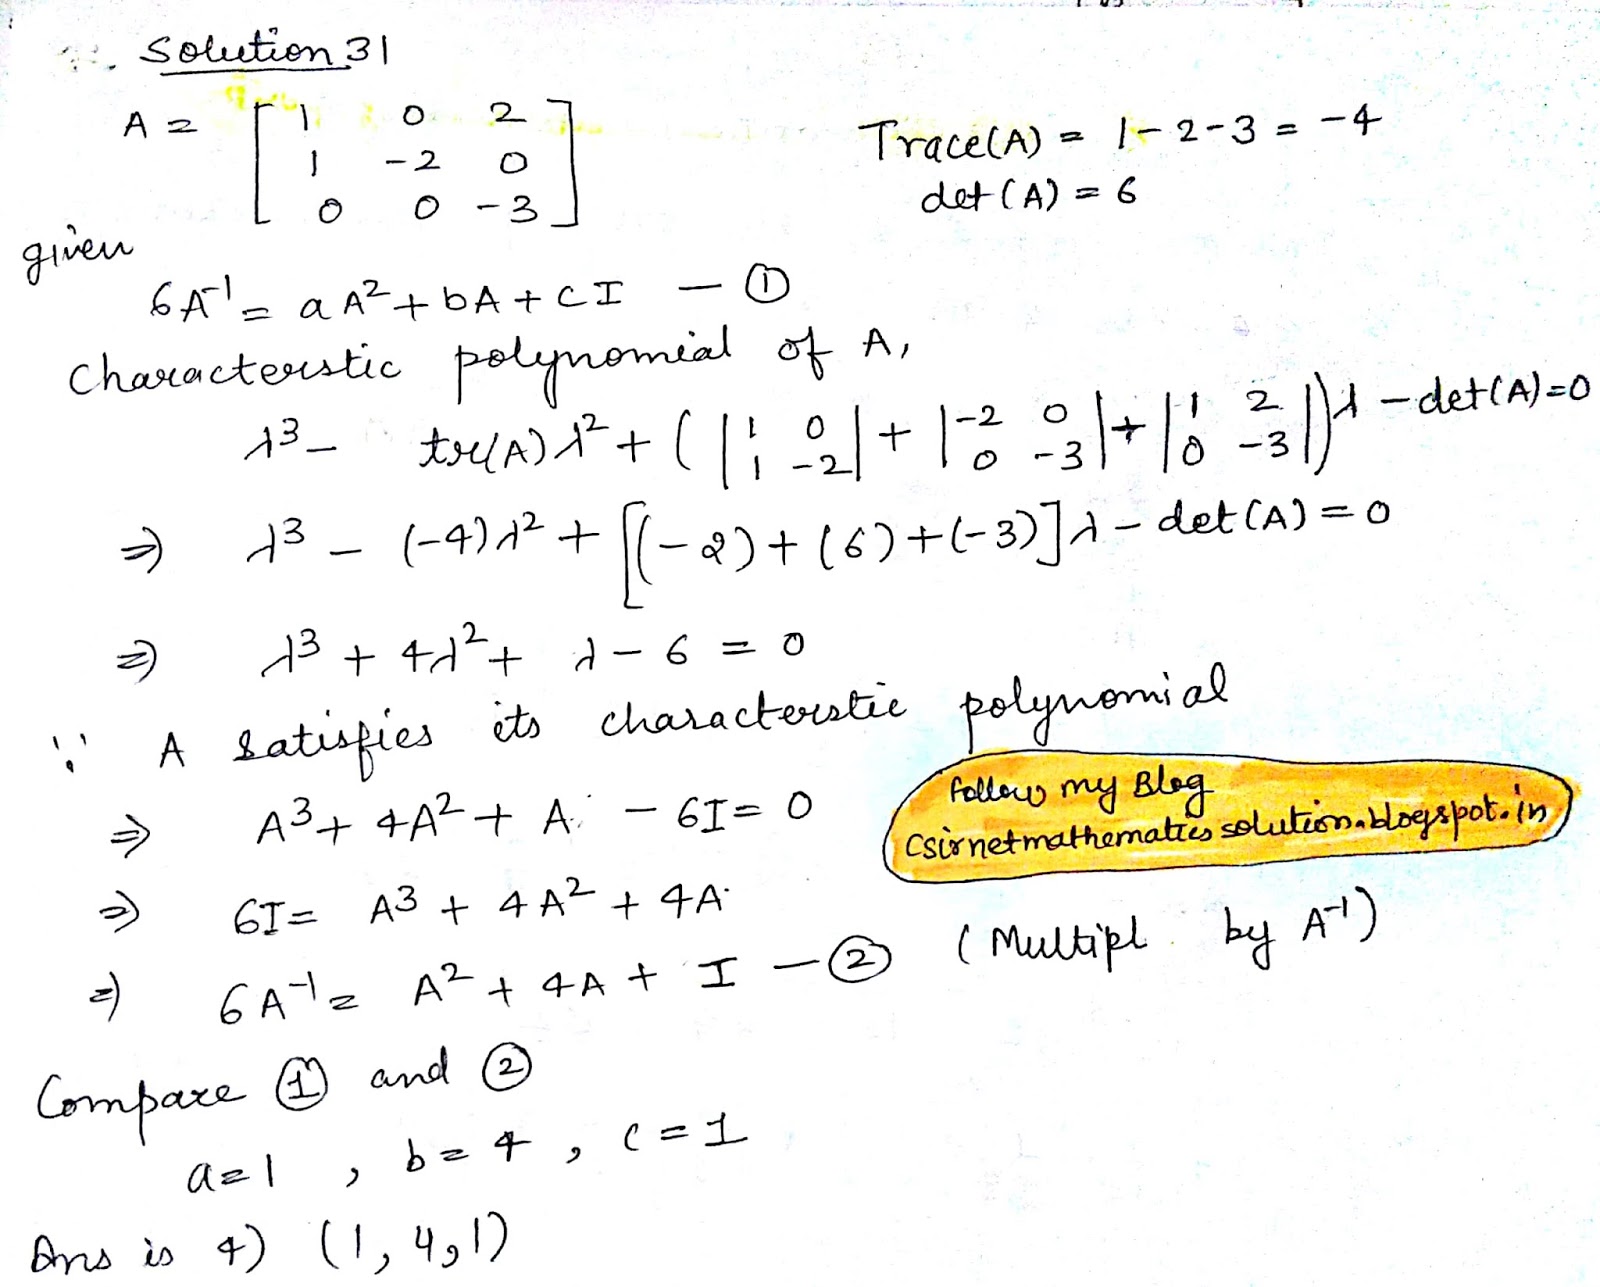 Solution 31
A = [ 1 0 2
1 -2 0
0 0 -3 ]
Trace(A) = 1-2-3 = -4
det(A) = 6
given
6A⁻¹ = aA² + bA + cI — ①
Characterstic polynomial of A,
λ³ - tr(A)λ² + ( |1 0; 1 -2| + |-2 0; 0 -3| + |1 2; 0 -3| )λ - det(A) = 0
⇒ λ³ - (-4)λ² + [(-2) + (6) + (-3)]λ - det(A) = 0
⇒ λ³ + 4λ² + λ - 6 = 0
∵ A satisfies its characterstic polynomial
⇒ A³ + 4A² + A - 6I = 0
follow my Blog
Csirnetmathematicssolution.blogspot.in
⇒ 6I = A³ + 4A² + 4A
⇒ 6A⁻¹ = A² + 4A + I — ② (Multipl by A⁻¹)
Compare ① and ②
a=1, b=4, c=1
Ans is 4) (1,4,1)